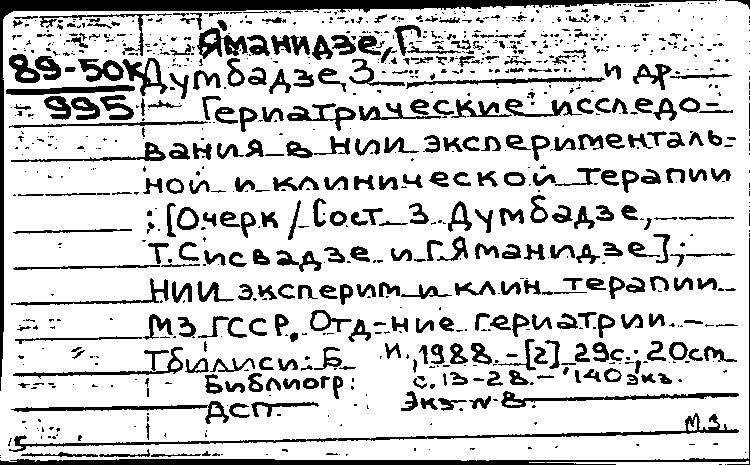 Яманидзе, Г
89-50К Думбадзе, З и др
995 Гериатрические исследо-
вания в НИИ эксперименталь-
ной и клинической терапии
: [Очерк / Сост З. Думбадзе,
Т. Сисвадзе и Г. Яманидзе];
НИИ эксперим и клин терапии
МЗ ГССР, Отд-ние гериатрии. –
Тбилиси: Б и., 1988. - [2] 29с.; 20см
Библиогр: с. 13-28. - 140 экз.
ДСП. Экз. N 8.
М.З.
5